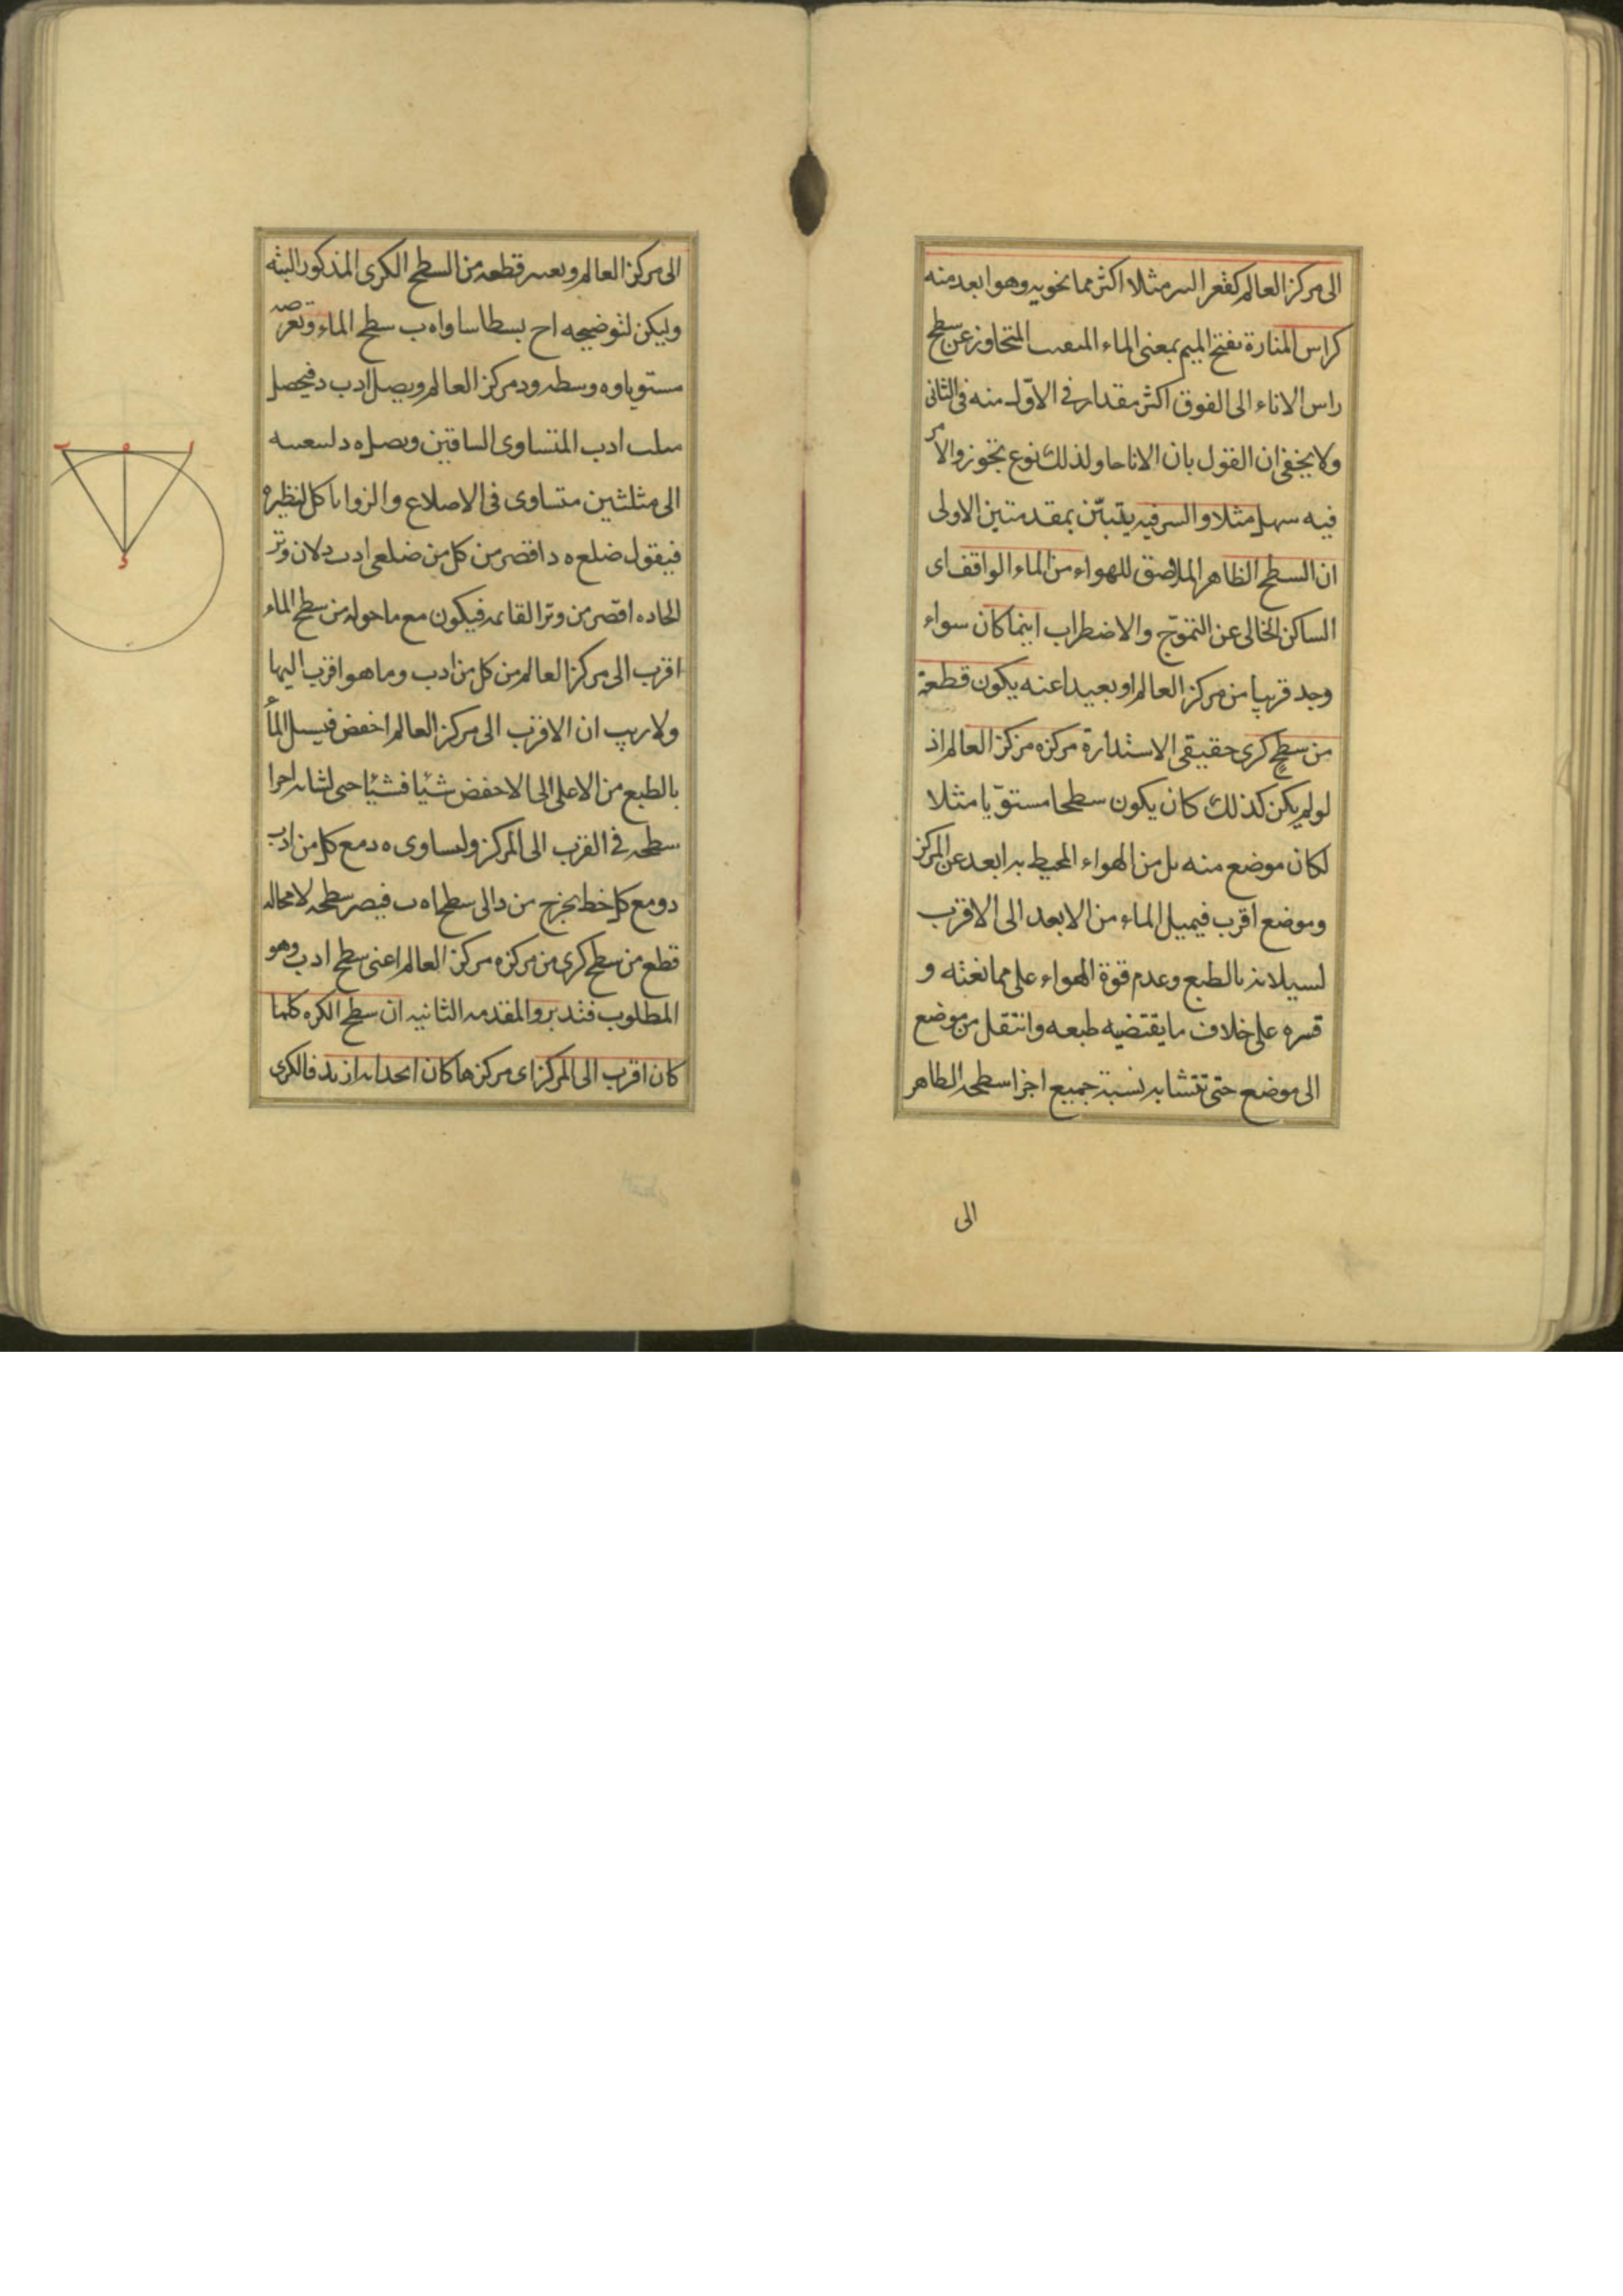 الى مركز العالم كقعر البير مثلا اكثر مما تحويه وهو ابعد منه
كراس المنارة بفتح الميم بمعنى الماء المتجاوز عن سطح
راس الاناء الى الفوق اكثر مقدار فى الاوّل منه فى الثانى
ولا يخفى ان القول بان الانا حاو لذلك نوع تجوز والامر
فيه سهل مثلا والسر فيه يتبيّن بمقدمتين الاولى
ان السطح الظاهر الملاصق للهواء من الماء الواقف اى
الساكن الخالى عن التموّج والاضطراب اينما كان سواء
وجد قريبا من مركز العالم او بعيدا عنه يكون قطعة
من سطح كرى حقيقى الاستدارة مركزه مركز العالم اذ
لو لم يكن كذلك كان يكون سطحا مستوّيا مثلا
لكان موضع منه بل من الهواء المحيط به ابعد عن المركز
وموضع اقرب فيميل الماء من الابعد الى الاقرب
لسيلانه بالطبع وعدم قوة الهواء على ممانعته و
قسره على خلاف ما يقتضيه طبعه وانتقل من موضع
الى موضع حتى تتشابه نسبة جميع اجزا سطحه الظاهر
الى
الى مركز العالم و قطعه من السطح الكرى المذكور البته
وليكن لتوضيحه ا ح بسطا ساوا ه ب سطح الماء ونعرضه
مستويا و ه وسطه و د مركز العالم ويصل ا د ب د فيحصل
مثلث ا د ب المتساوى الساقين ويصل ه د
الى مثلثين متساوى فى الاضلاع والزوايا كل لنظيره
فيقول ضلع ه د اقصر من كل من ضلعى ا د ب د لان وتر
الحاده اقصر من وتر القايمه فيكون مع ما حوله من سطح الماء
اقرب الى مركز العالم من كل من ا د ب وما هو اقرب اليها
ولا ريب ان الاقرب الى مركز العالم اخفض فيسيل الماء
بالطبع من الاعلى الى الاخفض شيئا فشيئا حتى تشابه اجزا
سطحه فى القرب الى المركز وليساوى ه د مع كل من ا د ب
د ومع كل خط يخرج من د الى سطح ا ه ب فيصر سطحه لا محاله
قطع من سطح كرى من مركزه مركز العالم اعنى سطح ا د ب وهو
المطلوب فتدبر والمقدمه الثانيه ان سطح الكره كلما
كان اقرب الى المركز اى مركزها كان احدابه ازيد فالكرى
ا
ه
ب
د